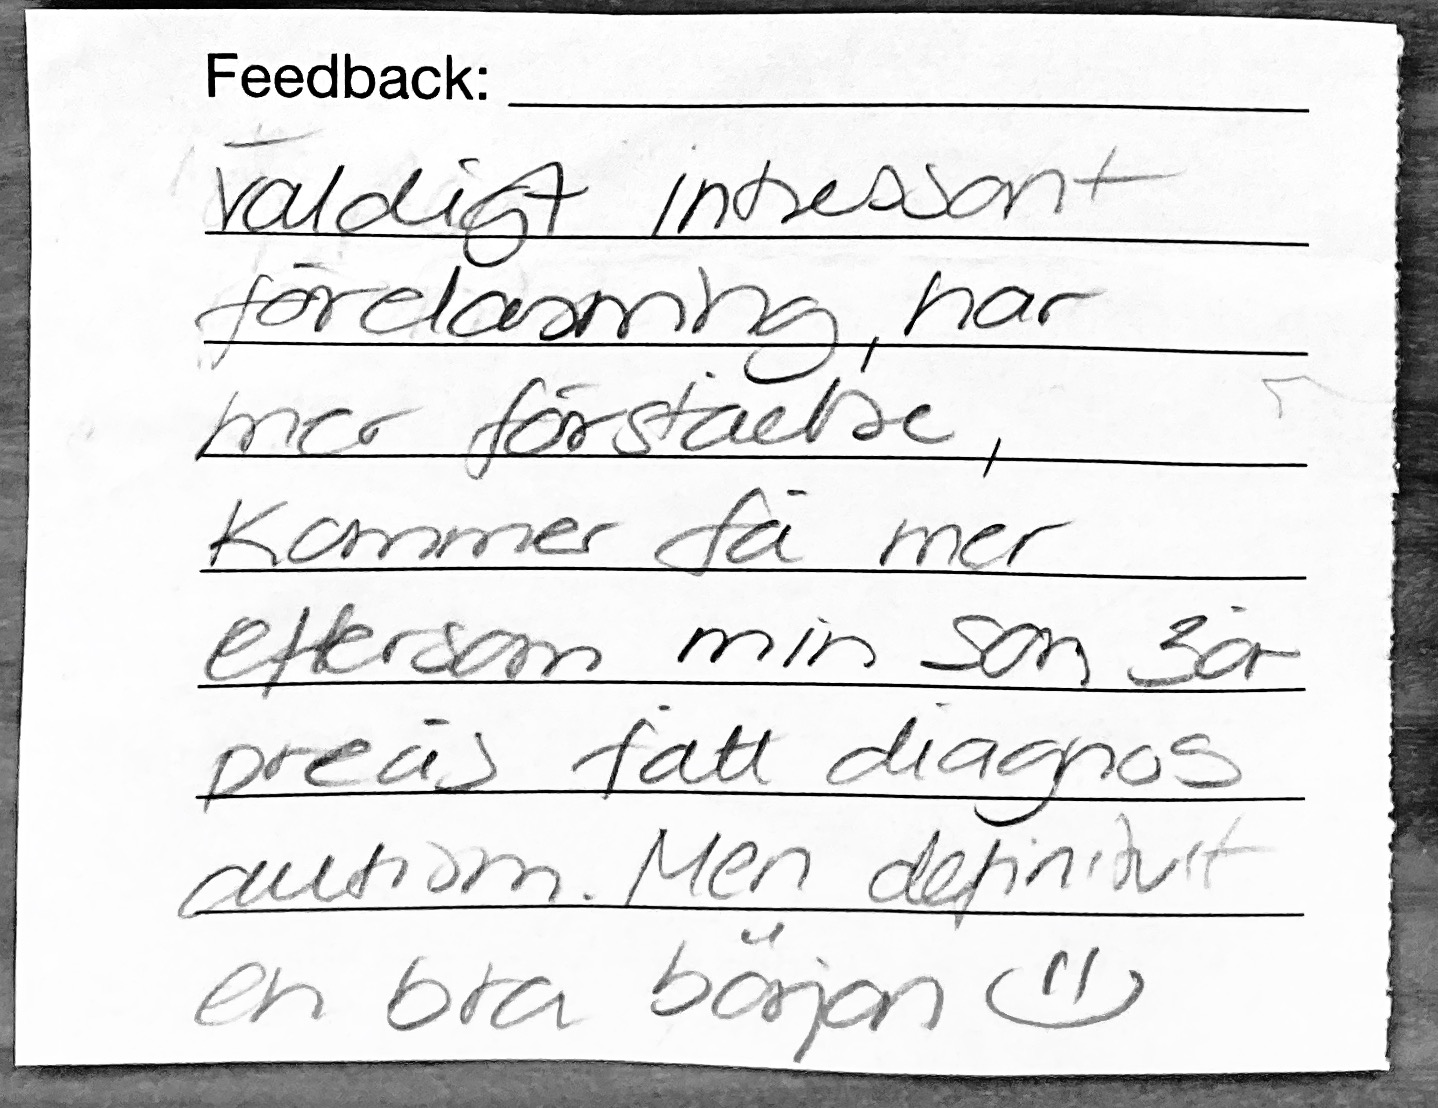 Feedback:
Väldigt intressant
föreläsning, har
mer förståelse,
Kommer få mer
eftersom min son 3år
precis fått diagnos
autism. Men definitivt
en bra början